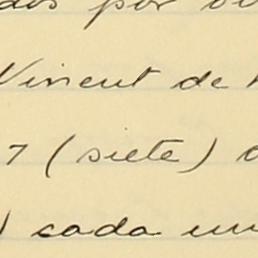 por
Vincent de
7 (siete)
) cada un